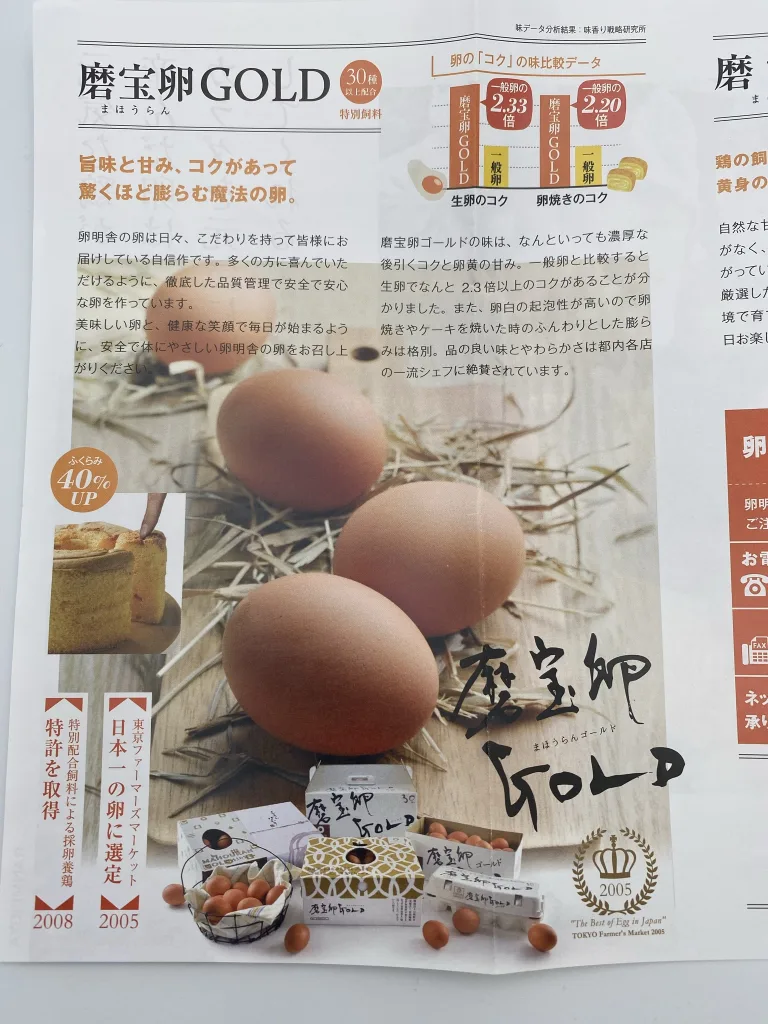 味データ分析結果：味香り戦略研究所
磨宝卵GOLD
まほうらん
30種
以上配合
特別飼料
卵の「コク」の味比較データ
磨宝卵GOLD
一般卵の
2.33
倍
一般卵
生卵のコク
磨宝卵GOLD
一般卵の
2.20
倍
一般卵
卵焼きのコク
旨味と甘み、コクがあって
驚くほど膨らむ魔法の卵。
卵明舎の卵は日々、こだわりを持って皆様にお
届けしている自信作です。多くの方に喜んでいた
だけるように、徹底した品質管理で安全で安心
な卵を作っています。
美味しい卵と、健康な笑顔で毎日が始まるよう
に、安全で体にやさしい卵明舎の卵をお召し上
がりください。
磨宝卵ゴールドの味は、なんといっても濃厚な
後引くコクと卵黄の甘み。一般卵と比較すると
生卵でなんと 2.3 倍以上のコクがあることが分
かりました。また、卵白の起泡性が高いので卵
焼きやケーキを焼いた時のふんわりとした膨ら
みは格別。品の良い味とやわらかさは都内各店
の一流シェフに絶賛されています。
ふくらみ
40%
UP
磨宝卵
まほうらんゴールド
GOLD
東京ファーマーズマーケット
日本一の卵に選定
2005
特別配合飼料による採卵養鶏
特許を取得
2008
磨宝卵
GOLD
磨宝卵GOLD
磨宝卵
ゴールド
2005
"The Best of Egg in Japan"
TOKYO Farmer's Market 2005
磨
ま
鶏の飼
黄身の
自然な甘
がなく、
がってい
厳選した
境で育
日お楽し
卵
卵明
ご注
お電
FAX
ネッ
承り